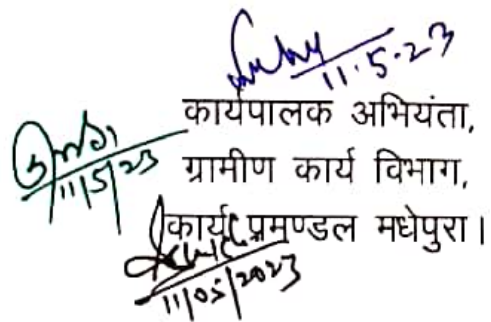 11.5.23
कार्यपालक अभियंता,
11/5/23
ग्रामीण कार्य विभाग,
कार्य प्रमण्डल मधेपुरा।
11/05/2023